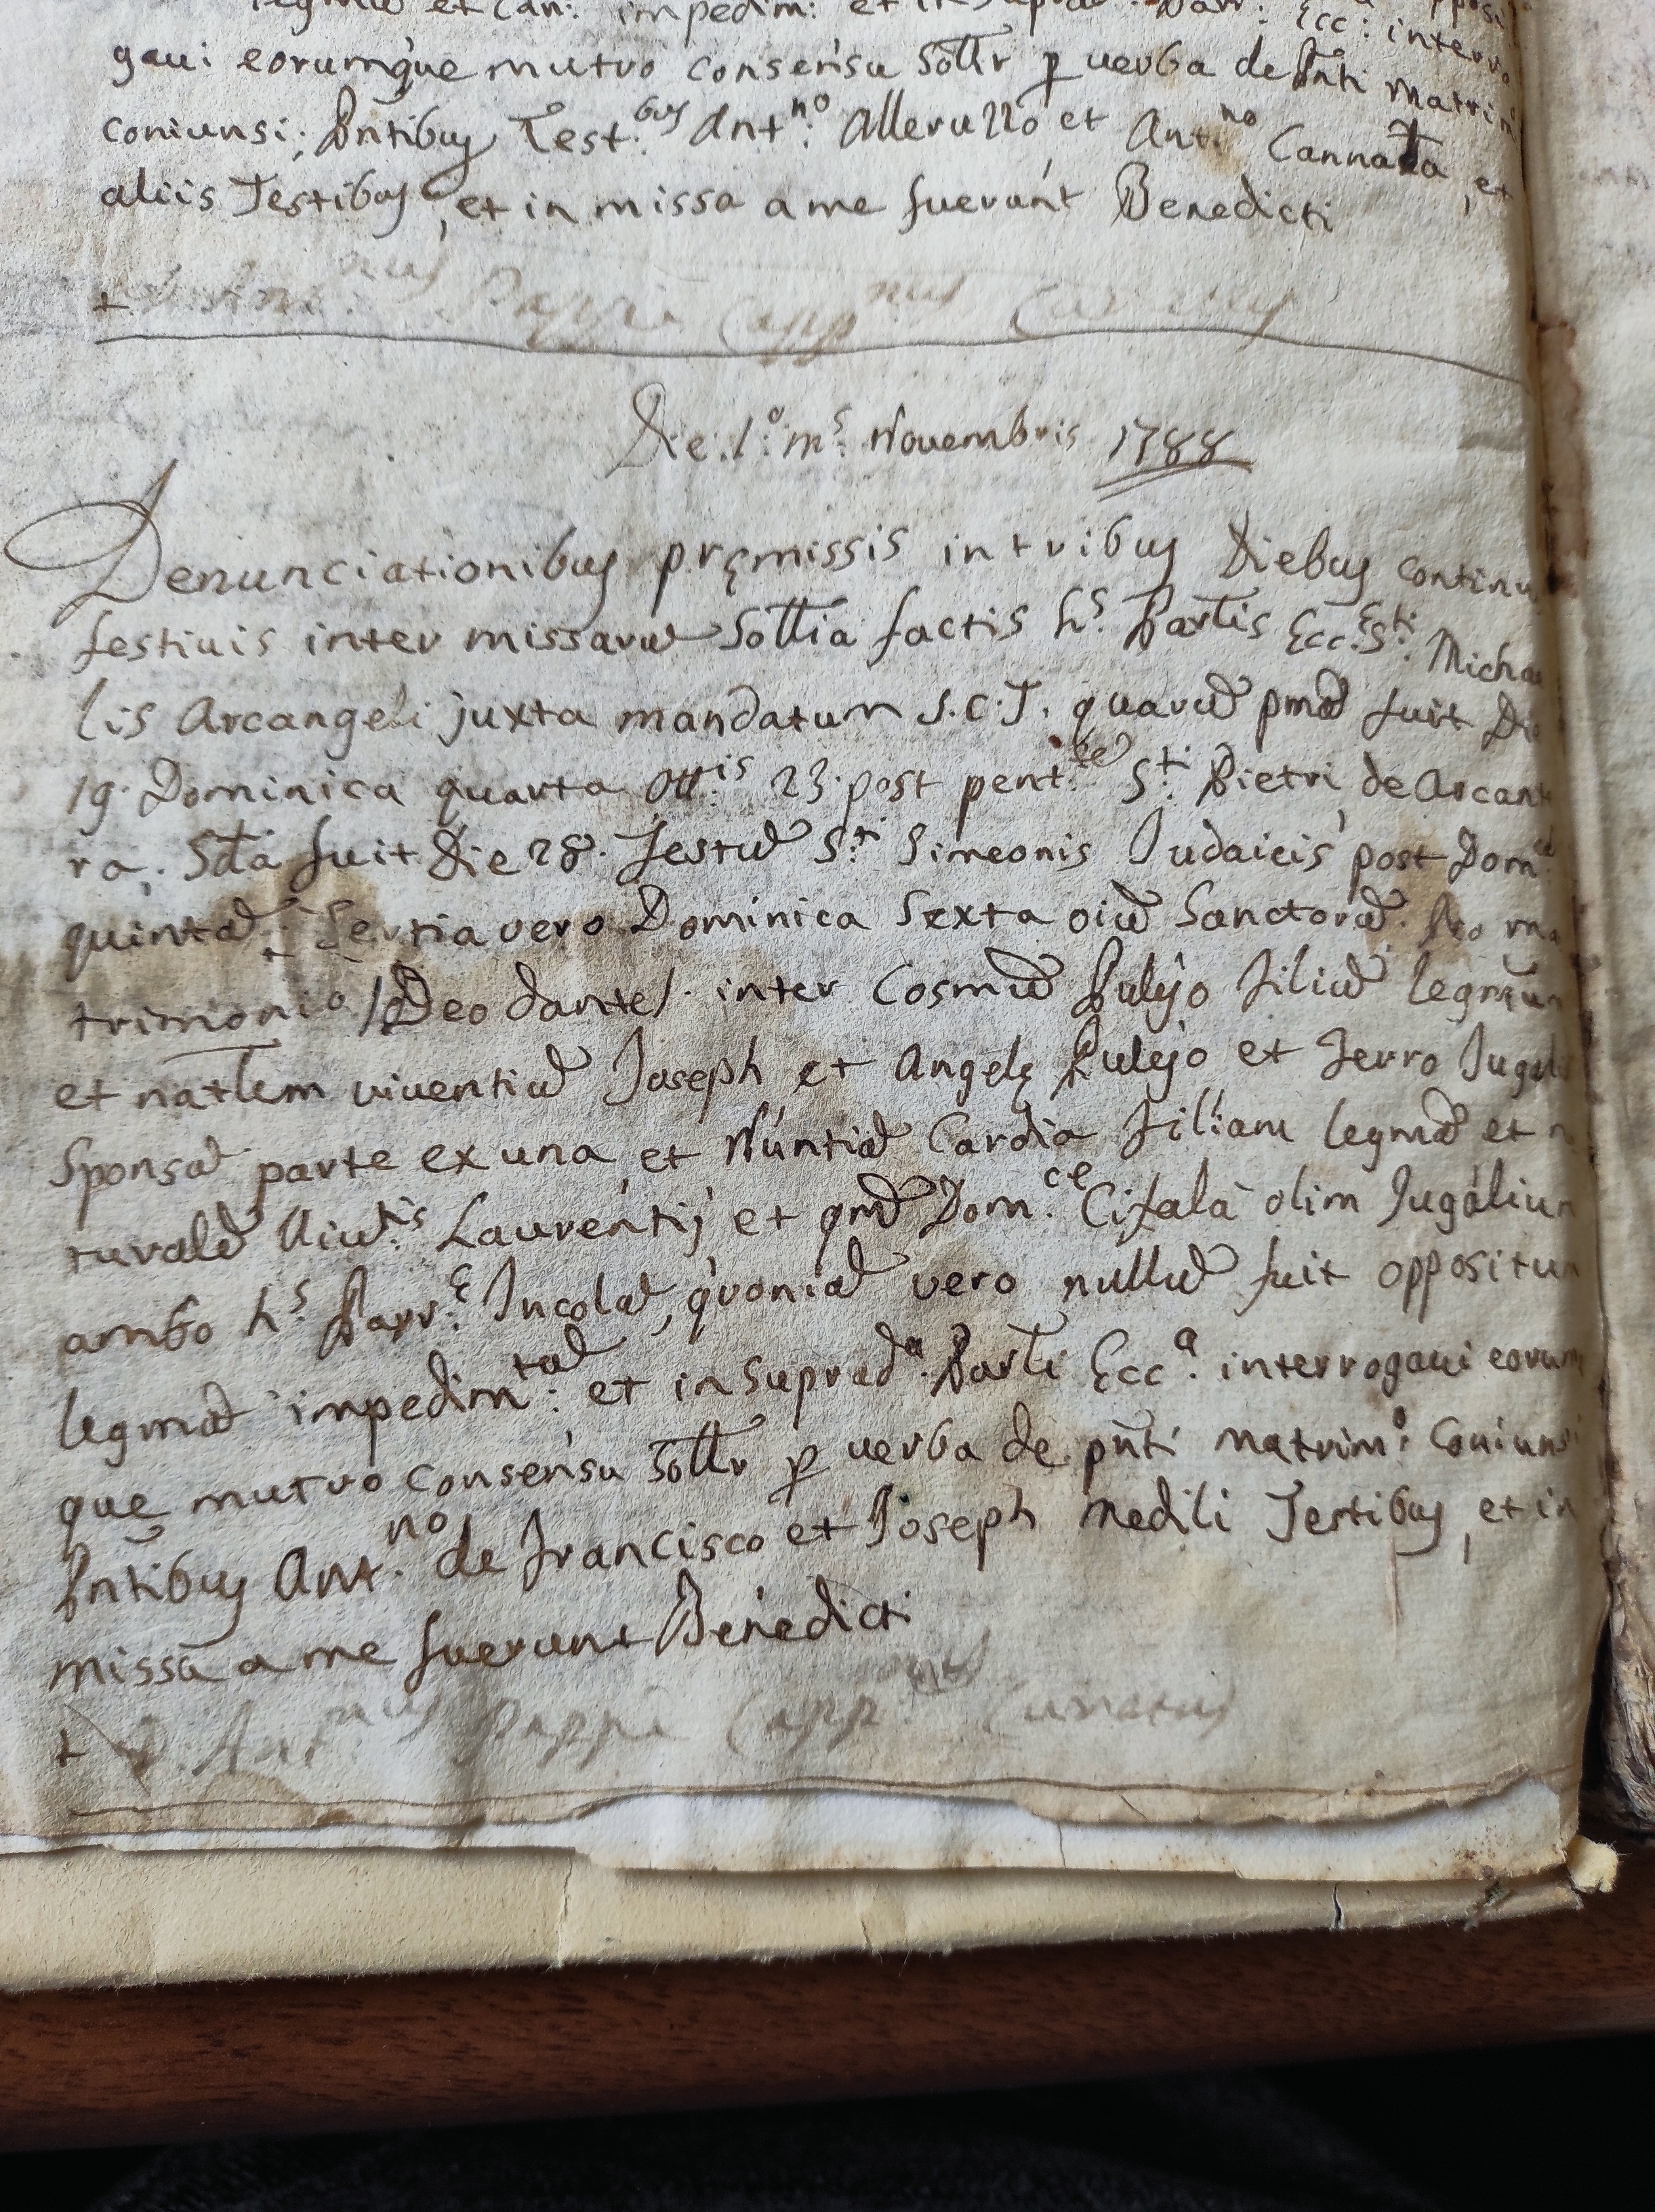 et Can: impedim: et in
gaui eorumque mutuo consensu Sollr p uerba de Pnti Matrim
coniunsi; Pntibus Test:bus Ant:no Alleruzzo et Ant:no Cannata, et
aliis Testibus, et in missa a me fuerunt Benedicti
+ Ant:nus Pappa Capp:nus
Die: 1:o m:s Nouembris 1788
Denunciationibus pręmissis in tribus Diebus continu
festiuis inter missarũ Sollia factis h:s Parlis Ecc:ę S:ti Micha
lis Arcangeli juxta mandatum S.C.T. quarũ pmã fuit Di
19. Dominica quarta Ott:is 23. post pent:te S:ti Pietri de Arcant
ra; Sda fuit Die 28. Festũ S:ti Simeonis Judaicis post Dom:cã
quintã; Tertia vero Dominica Sexta oiũ Sanctorũ. Pro ma
trimonio /Deo dante/. inter Cosmũ Pulejo Filiũ legmum
et natlem viuentiũ Joseph et Angelę Pulejo et Ferro Jugal
Sponsã parte ex una et Nuntiã Cardia Filiam legmã et n
turalẽ Uiu:tis Laurentij et qmã Dom:ce Cifalà olim Jugalium
ambo h:s Parr:ę Incolã, quoniã vero nullũ fuit oppositum
legmã impedim:tũ et in Suprad:a Parli Ecc:a interrogaui eorum
que mutuo consensu Sollr p uerba de pnti matrim:o Coniunsi
Pntibus Ant:no de Francisco et Joseph Medili Testibus, et in
missa a me fuerunt Benedicti
+ D. Ant:nus Pappa Capp:nus Curatus